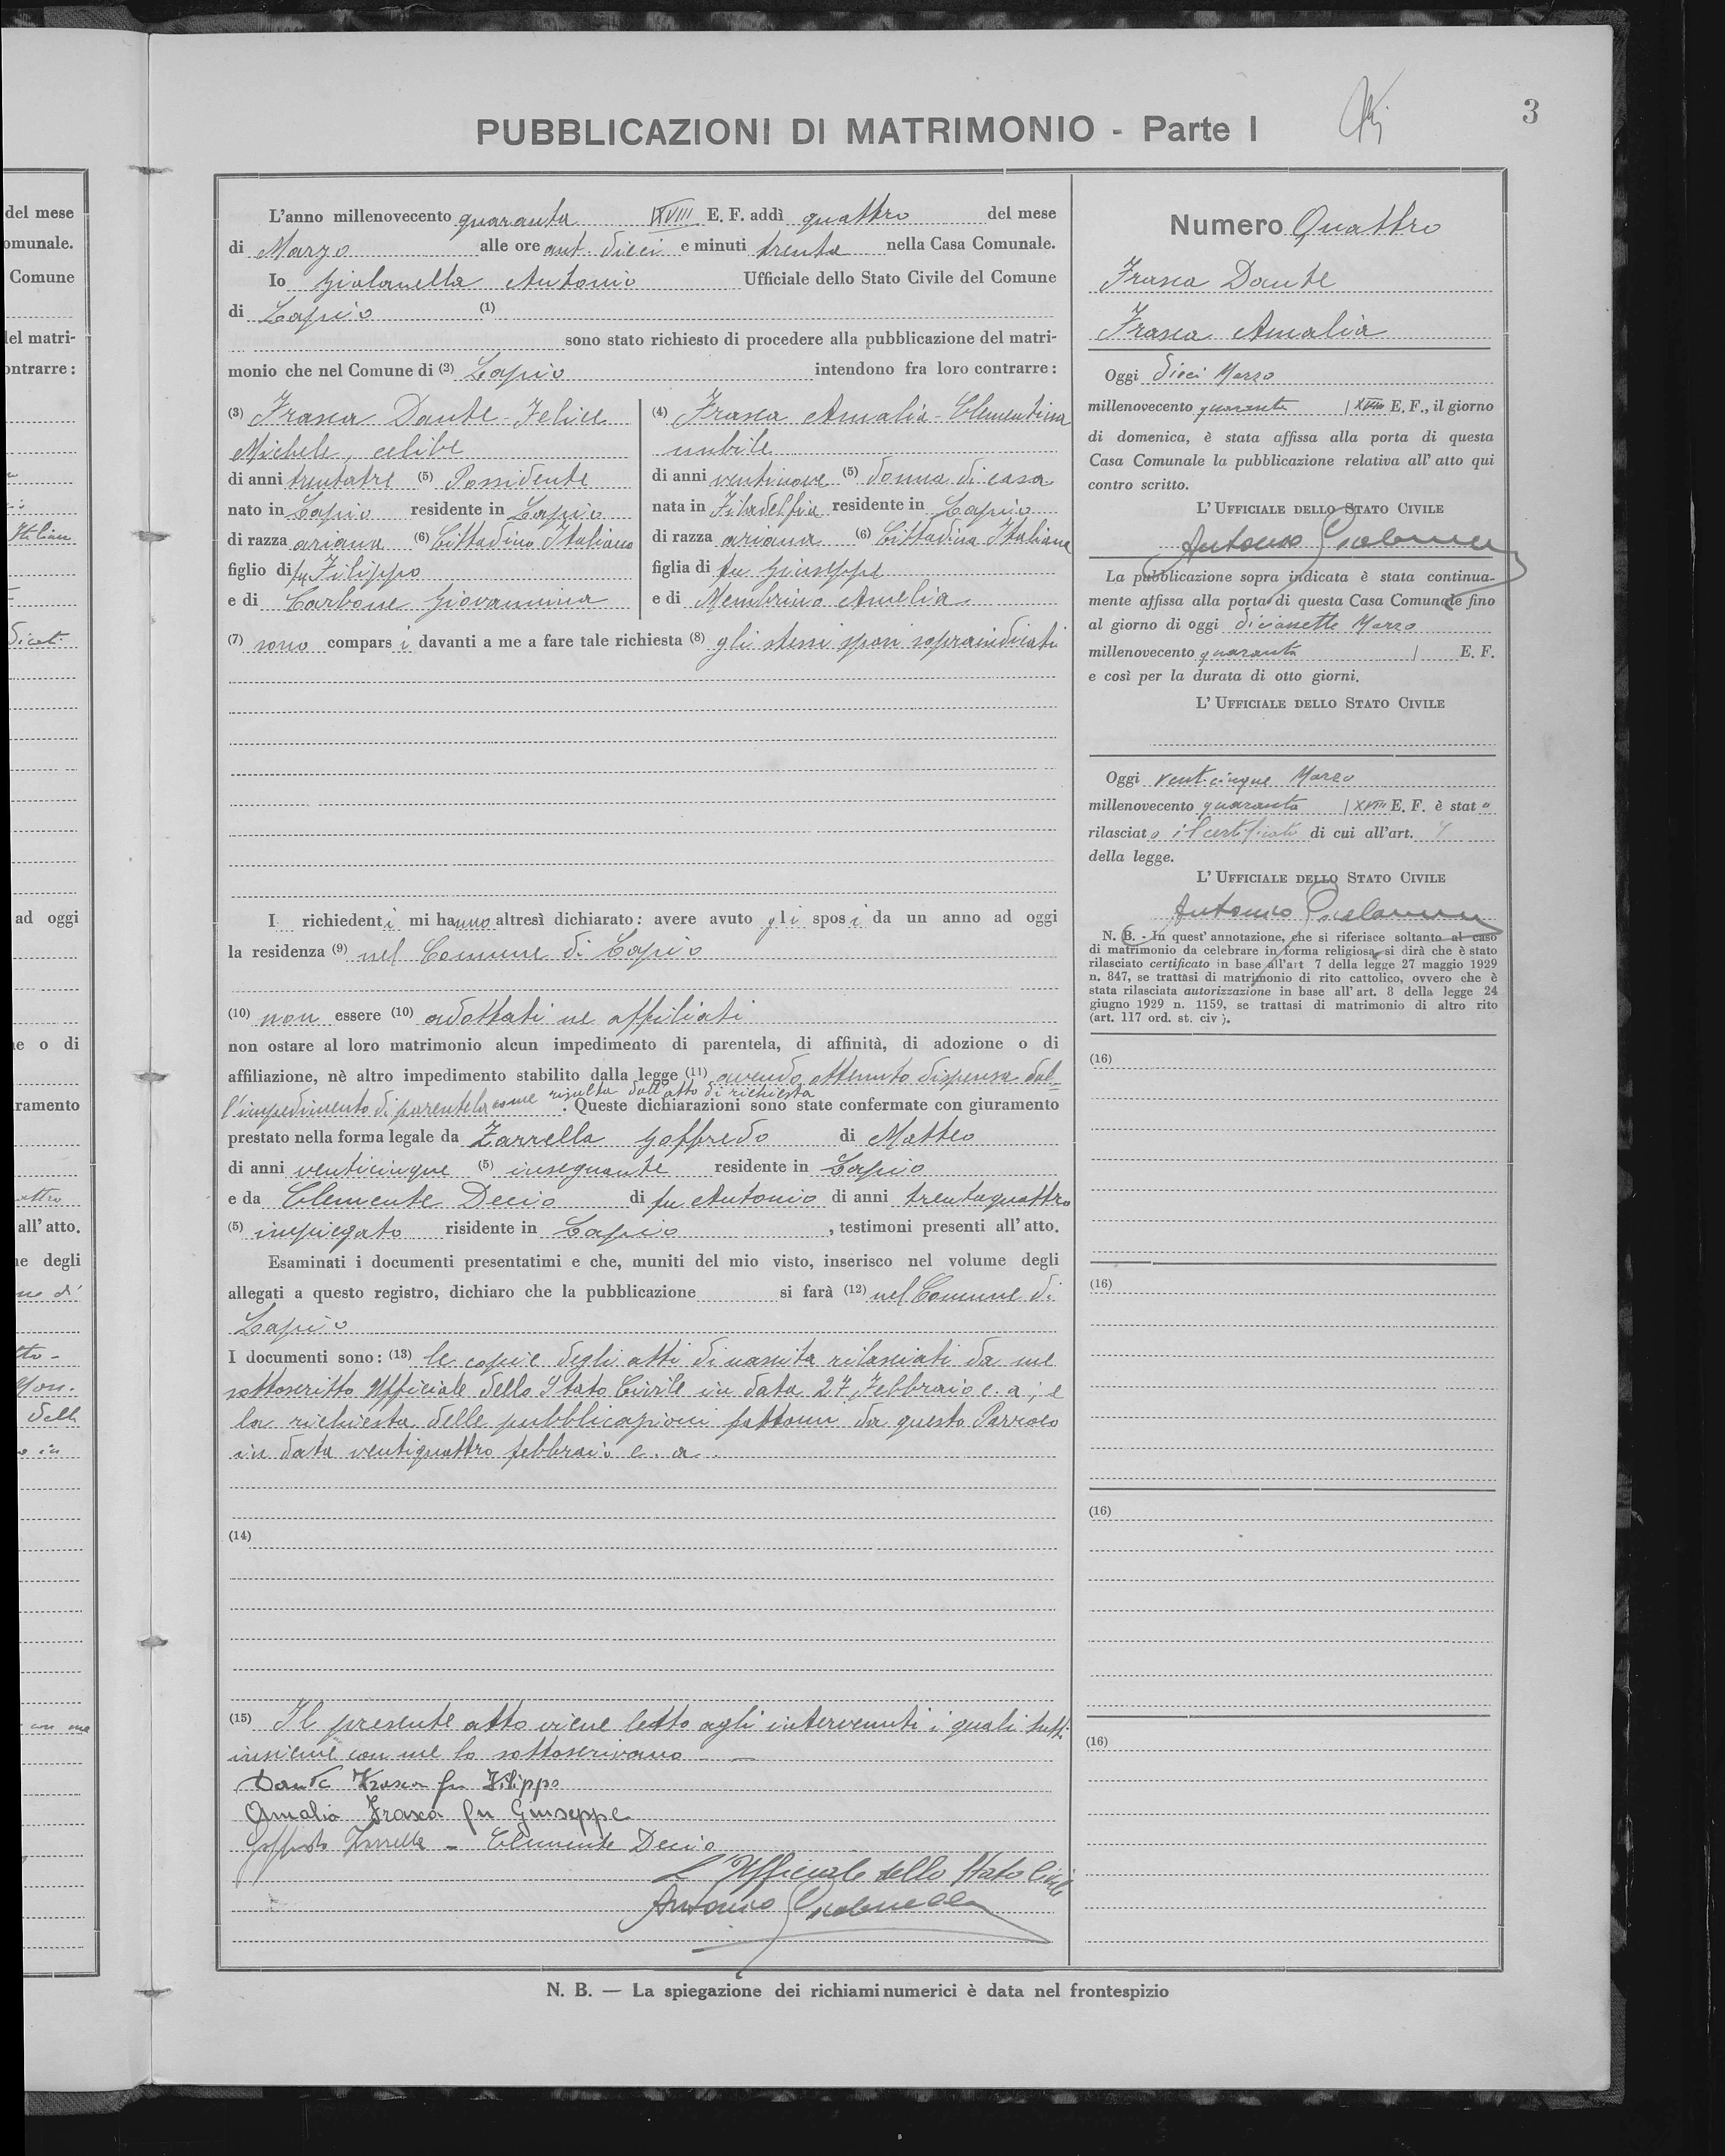 3
PUBBLICAZIONI DI MATRIMONIO - Parte I
L'anno millenovecento quaranta XVIII E. F. addì quattro del mese
di Marzo alle ore ant. dieci e minuti trenta nella Casa Comunale.
Io Antonio Ufficiale dello Stato Civile del Comune
di Lapio (1)
sono stato richiesto di procedere alla pubblicazione del matri-
monio che nel Comune di (2) Lapio intendono fra loro contrarre:
(3) Frasca Dante - Felice
Michele, celibe
di anni trentatre (5) Possidente
nato in Lapio residente in Lapio
di razza ariana (6) Cittadino Italiano
figlio di fu Filippo
e di Carbone Giovannina
(4) Frasca Amalia - Clementina
nubile
di anni ventinove (5) donna di casa
nata in Filadelfia residente in Lapio
di razza ariana (6) Cittadina Italiana
figlia di fu Giuseppe
e di Membrino Amelia
(7) sono compars i davanti a me a fare tale richiesta (8) gli stessi sposi sopraindicati
I richiedent i mi hanno altresì dichiarato: avere avuto gli spos i da un anno ad oggi
la residenza (9) nel Comune di Lapio
(10) non essere (10) adottati ne affiliati
non ostare al loro matrimonio alcun impedimento di parentela, di affinità, di adozione o di
affiliazione, nè altro impedimento stabilito dalla legge (11) avendo ottenuto dispensa dal-
l'impedimento di parentela come risulta dall'atto di richiesta. Queste dichiarazioni sono state confermate con giuramento
prestato nella forma legale da Zarrella Goffredo di Matteo
di anni venticinque (5) insegnante residente in Lapio
e da Clemente Decio di fu Antonio di anni trentaquattro
(5) impiegato risidente in Lapio, testimoni presenti all'atto.
Esaminati i documenti presentatimi e che, muniti del mio visto, inserisco nel volume degli
allegati a questo registro, dichiaro che la pubblicazione si farà (12) nel Comune di
Lapio
I documenti sono: (13) le copie degli atti di nascita rilasciati da me
sottoscritto Ufficiale dello Stato Civile in data 27 Febbraio c. a; e
la richiesta delle pubblicazioni fattomi da questo Parroco
in data ventiquattro febbraio c. a.
(14)
(15) Il presente atto viene letto agli intervenuti i quali tutti
insieme con me lo sottoscrivano
Dante Frasca fu Filippo
Amalia Frasca fu Giuseppe
Goffredo Zarrella - Clemente Decio
L'Ufficiale dello Stato Civile
Antonio
N. B. — La spiegazione dei richiami numerici è data nel frontespizio
Numero Quattro
Frasca Dante
Frasca Amalia
Oggi dieci Marzo
millenovecento quaranta XVIII E. F., il giorno
di domenica, è stata affissa alla porta di questa
Casa Comunale la pubblicazione relativa all'atto qui
contro scritto.
L'UFFICIALE DELLO STATO CIVILE
Antonio
La pubblicazione sopra indicata è stata continua-
mente affissa alla porta di questa Casa Comunale fino
al giorno di oggi diciassette Marzo
millenovecento quaranta E. F.
e così per la durata di otto giorni.
L'UFFICIALE DELLO STATO CIVILE
Oggi venticinque Marzo
millenovecento quaranta XVIII E. F. è stat o
rilasciat o il certificato di cui all'art. 7
della legge.
L'UFFICIALE DELLO STATO CIVILE
Antonio
N. B. - In quest'annotazione, che si riferisce soltanto al caso
di matrimonio da celebrare in forma religiosa, si dirà che è stato
rilasciato certificato in base all'art 7 della legge 27 maggio 1929
n. 847, se trattasi di matrimonio di rito cattolico, ovvero che è
stata rilasciata autorizzazione in base all'art. 3 della legge 24
giugno 1929 n. 1159, se trattasi di matrimonio di altro rito
(art. 117 ord. st. civ).
(16)
(16)
(16)
(16)
del mese
omunale.
Comune
del matri-
ontrarre:
ad oggi
e o di
ramento
all'atto.
ne degli